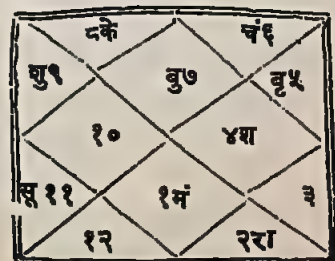 ८के चं६
शु९ बु७ बृ५
१० ४श
सू ११ १मं ३
१२ २रा